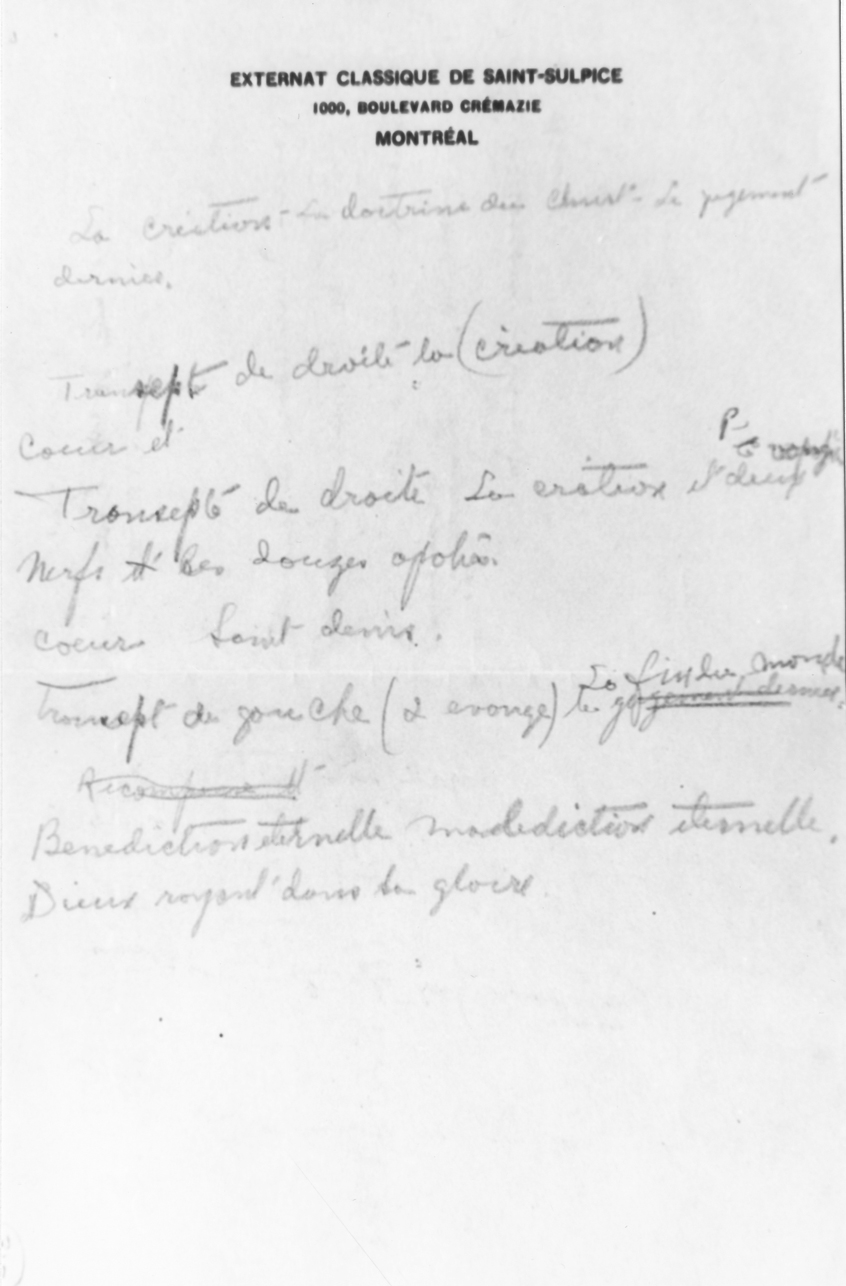 EXTERNAT CLASSIQUE DE SAINT-SULPICE
1000, BOULEVARD CRÉMAZIE
MONTRÉAL
La création - La doctrine du Christ - Le jugement
dernier.
Transept de droite la (création)
Coeur et
Transept de droite La création et deux
Nerfs et Les douzes
coeur Saint denis.
La fin du monde
Transept de gauche (2 evange) le jugement dernier
Récompense et
Benediction éternelle maledictiox éternelle.
Dieux royant dans sa gloire.